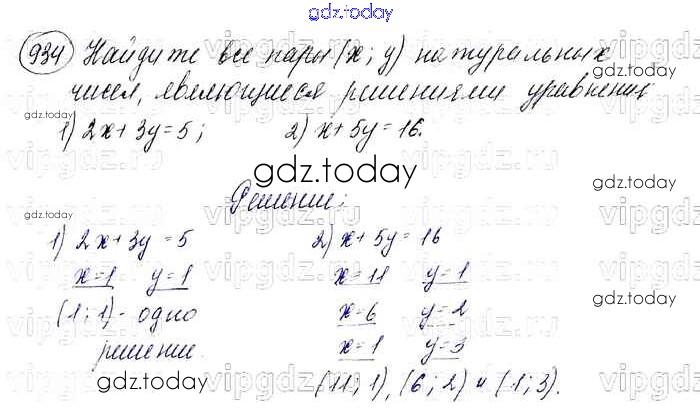 gdz.today
934 Найдите все пары (x; y) натуральных
чисел, являющиеся решениями уравнения:
1) 2x + 3y = 5; 2) x + 5y = 16.
gdz.today
gdz.today
gdz.today
gdz.today
Решение:
1) 2x + 3y = 5 2) x + 5y = 16
x = 1 y = 1 x = 11 y = 1
gdz.today
(1; 1) - одно x = 6 y = 2
решение. x = 1 y = 3
gdz.today
gdz.today
(11; 1), (6; 2) и (1; 3).